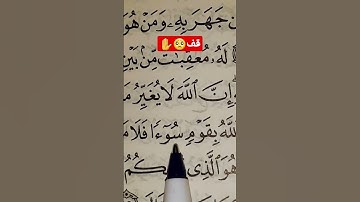 جَهَرَ بِهِۦ وَمَنۡ هُوَ
قف
لَهُۥ مُعَقِّبَٰتٞ مِّنۢ بَيۡنِ
إِنَّ ٱللَّهَ لَا يُغَيِّرُ مَا
ٱللَّهُ بِقَوۡمٖ سُوٓءٗا فَلَا
هُوَ ٱلَّذِي